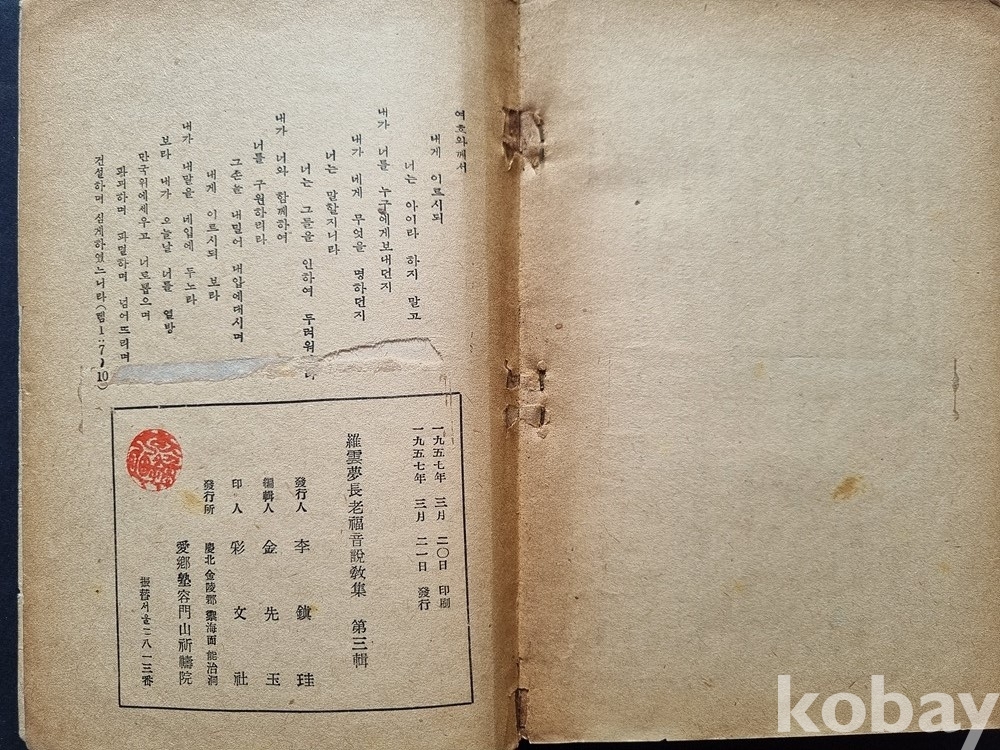 여호와께서
내게 이르시되
너는 아이라 하지 말고
내가 너를 누구에게보내던지
내가 네게 무엇을 명하던지
너는 말할지니라
너는 그들을 인하여 두려워
내가 너와 함께하여
너를 구원하리라
그손을 내밀어 내입에대시며
내게 이르시되 보라
내가 내말을 네입에 두노라
보라 내가 오늘날 너를 열방
만국위에세우고 너로뽑으며
파괴하며 파멸하며 넘어뜨리며
건설하며 심게하였느니라(렘1:7)10)
一九五七年 三月 二〇日 印刷
一九五七年 三月 二一日 發行
羅雲夢長老福音說敎集 第三輯
發行人 李鎭珪
編輯人 金先玉
印人 彩文社
發行所 慶北金陵郡 海面能治洞
愛鄕塾容門山祈禱院
振替서울二八一三番
kobay